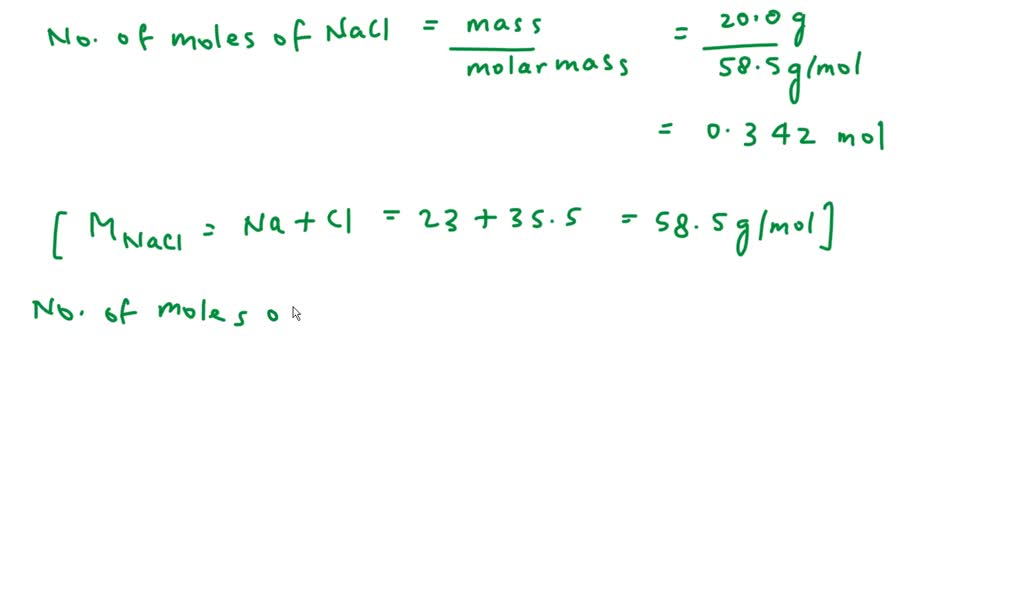 No. of moles of NaCl = mass / molar mass = 20.0 g / 58.5 g/mol
= 0.342 mol
[ M_NaCl = Na + Cl = 23 + 35.5 = 58.5 g/mol ]
No. of moles o